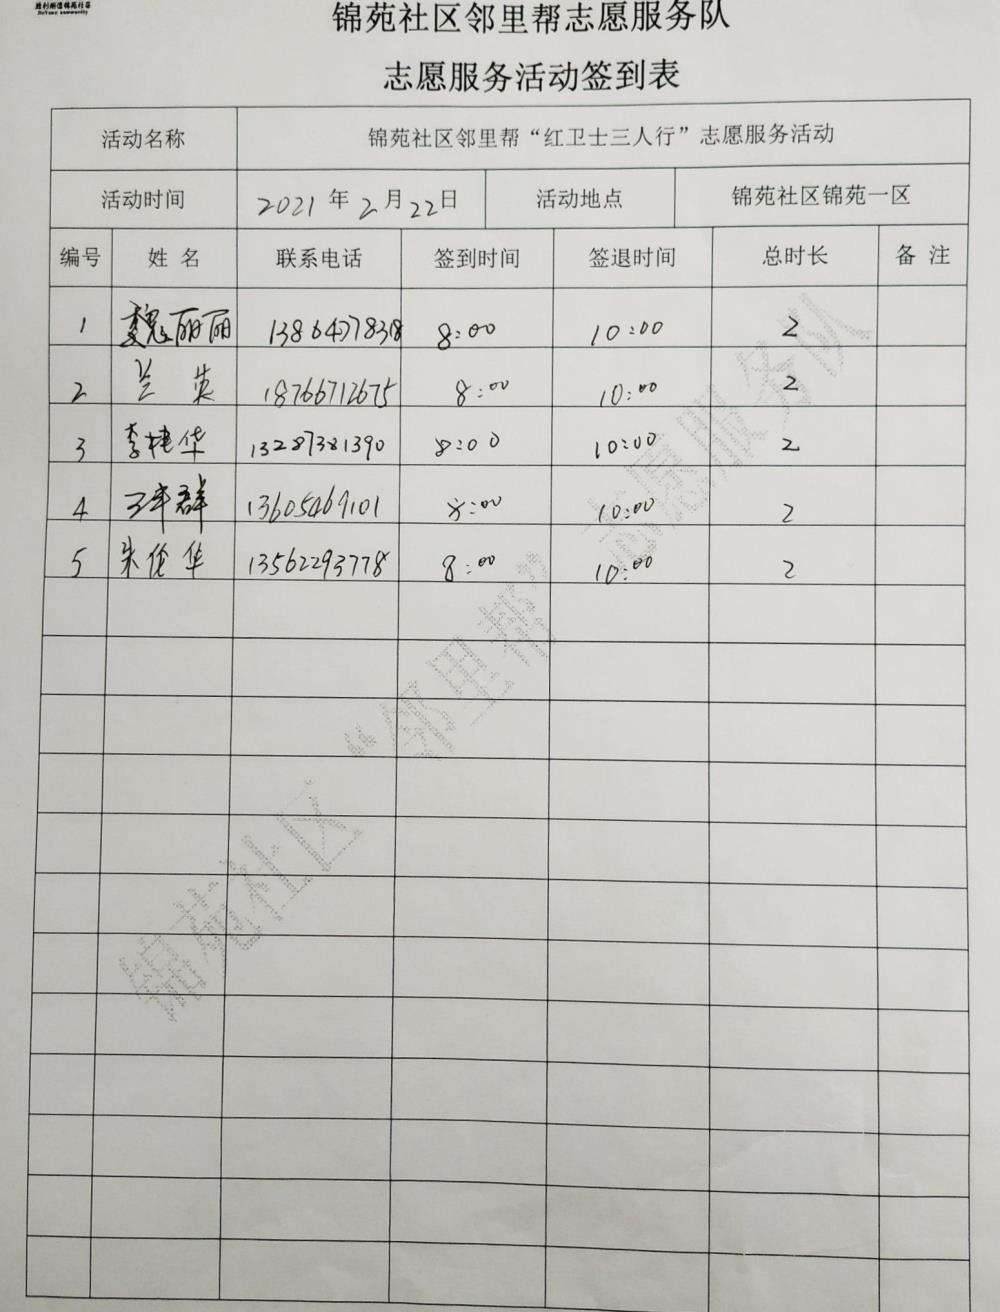 锦苑社区邻里帮志愿服务队
志愿服务活动签到表
活动名称 锦苑社区邻里帮“红卫士三人行”志愿服务活动
活动时间 2021年2月22日 活动地点 锦苑社区锦苑一区
编号 姓名 联系电话 签到时间 签退时间 总时长 备注
1 魏丽丽 13864778318 8:00 10:00 2
2 兰英 18766712675 8:00 10:00 2
3 李桂华 13287381390 8:00 10:00 2
4 群 13605469101 8:00 10:00 2
5 朱伦华 13562293778 8:00 10:00 2
锦苑社区“邻里帮”志愿服务队